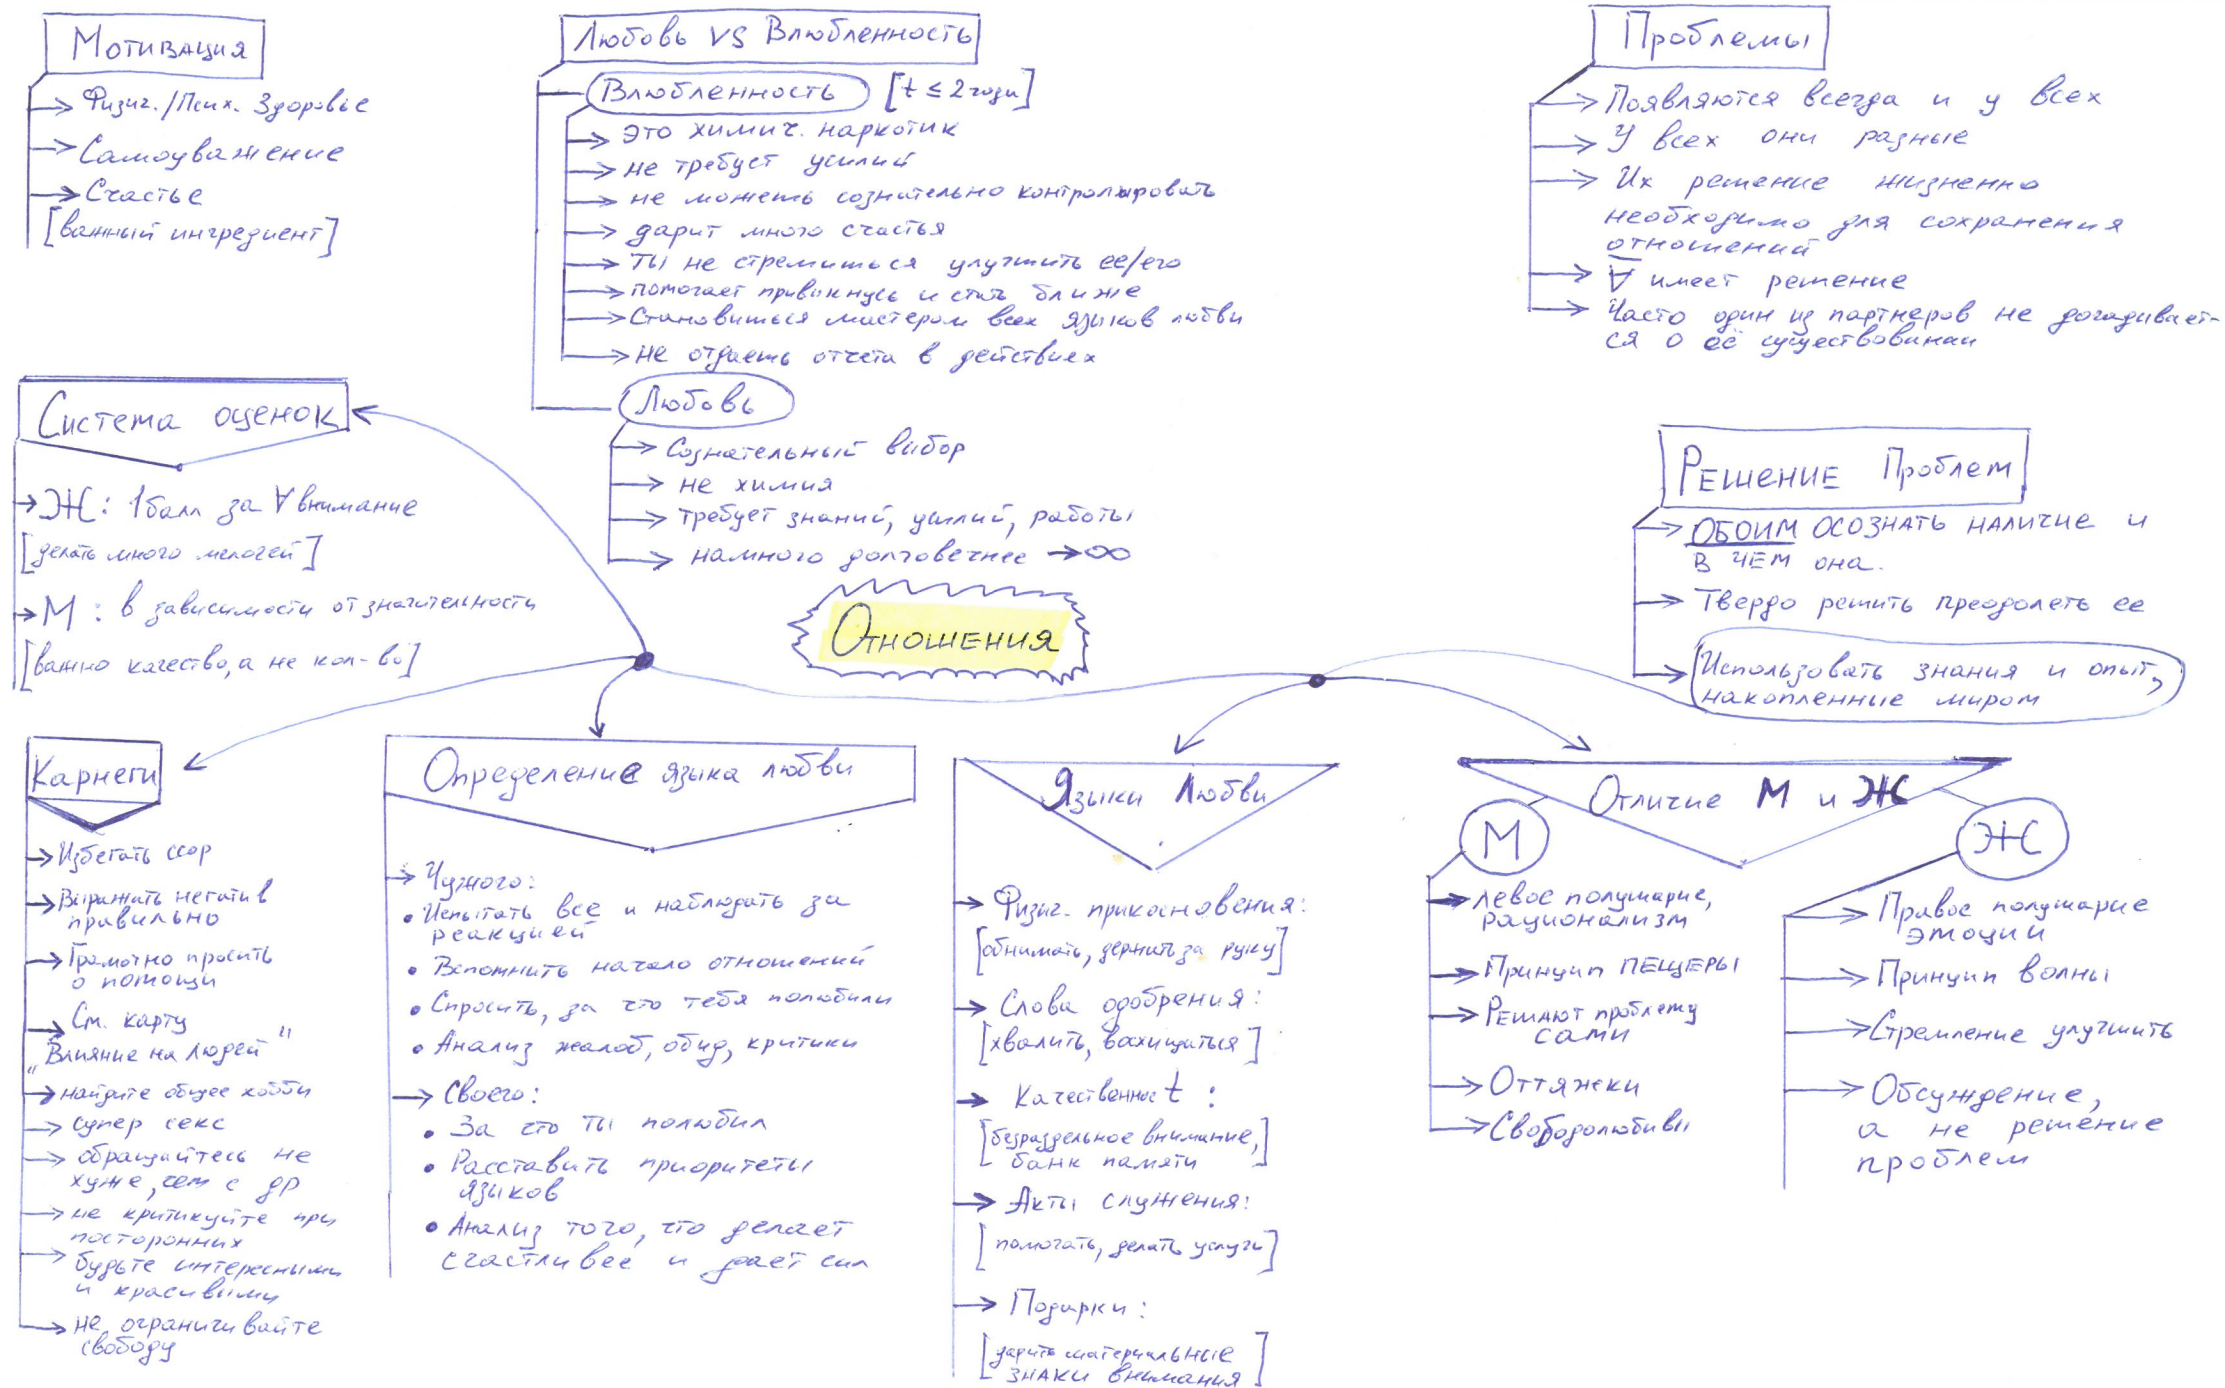 Мотивация
Физич./Псих. Здоровье
Самоуважение
Счастье
[важный ингредиент]
Любовь VS Влюбленность
Влюбленность [t ≤ 2 года]
это химич. наркотик
не требует усилий
не можешь сознательно контролировать
дарит много счастья
ты не стремишься улучшить ее/его
помогает привыкнуть и стать ближе
Становишься мастером всех языков любви
не отдаешь отчета в действиях
Любовь
Сознательный выбор
не химия
требует знаний, усилий, работы
намного долговечнее → ∞
Проблемы
Появляются всегда и у всех
У всех они разные
Их решение жизненно
необходимо для сохранения
отношений
∀ имеет решение
Часто один из партнеров не догадывает-
ся о её существовании
Решение Проблем
ОБОИМ осознать наличие и
в чем она.
Твердо решить преодолеть ее
Использовать знания и опыт,
накопленные миром
Система оценок
Ж: 1 балл за ∀ внимание
[делать много мелочей]
М: в зависимости от значительности
[важно качество, а не кол-во]
Отношения
Карнеги
Избегать ссор
Выражать негатив
правильно
Грамотно просить
о помощи
См. карту
"Влияние на людей"
найдите общее хобби
супер секс
обращайтесь не
хуже, чем с др
не критикуйте при
посторонних
будьте интересными
и красивыми
не ограничивайте
свободу
Определение языка любви
Чужого:
• Испытать все и наблюдать за
реакцией
• Вспомнить начало отношений
• Спросить, за что тебя полюбили
• Анализ жалоб, обид, критики
Своего:
• За что ты полюбил
• Расставить приоритеты
языков
• Анализ того, что делает
счастливее и дает сил
Языки Любви
Физич. прикосновения:
[обнимать, держать за руку]
Слова одобрения:
[хвалить, восхищаться]
Качественное t:
[безраздельное внимание,
банк памяти]
Акты служения:
[помогать, делать услуги]
Подарки:
[дарить материальные
знаки внимания]
Отличие М и Ж
М
левое полушарие,
рационализм
Принцип ПЕЩЕРЫ
Решают проблему
сами
Оттяжки
Свободолюбивы
Ж
Правое полушарие
эмоции
Принцип волны
Стремление улучшить
Обсуждение,
а не решение
проблем